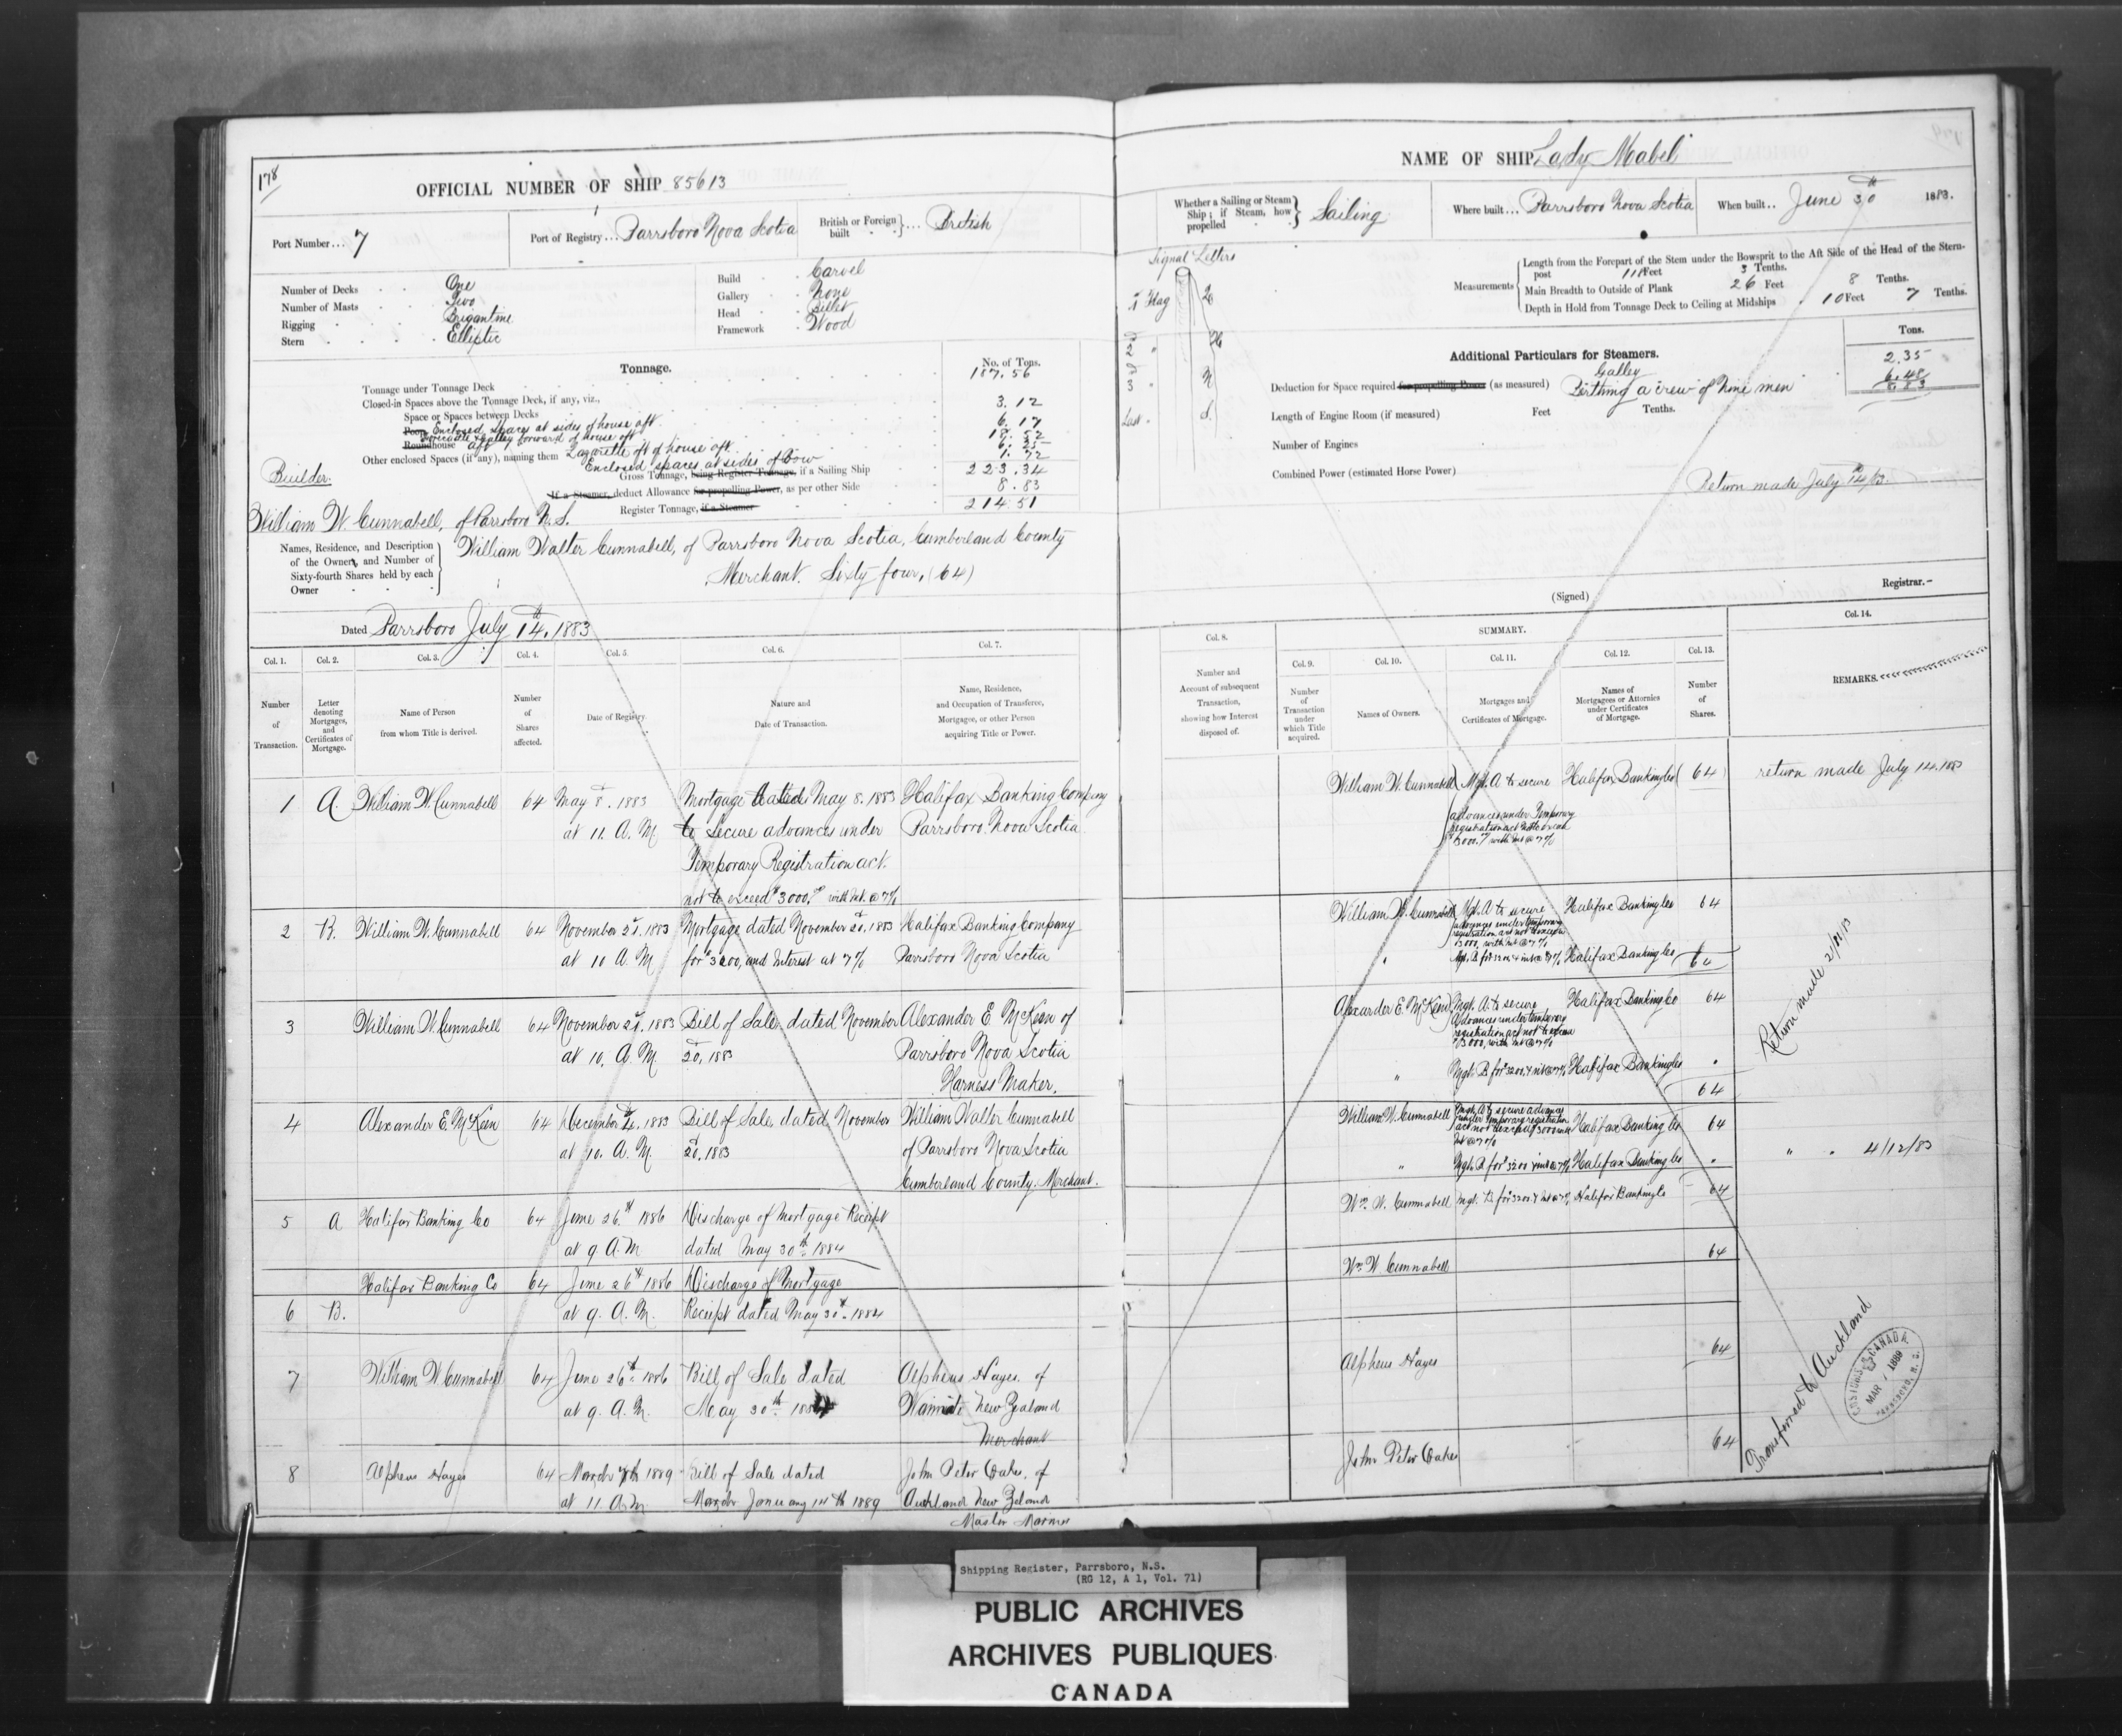 178
OFFICIAL NUMBER OF SHIP 85613
Port Number... 7
Port of Registry... Parrsboro Nova Scotia
British or Foreign built } ... British
Number of Decks One
Number of Masts Two
Rigging Brigantine
Stern Elliptic
Build Carvel
Gallery None
Head Billet
Framework Wood
Tonnage.
No. of Tons.
Tonnage under Tonnage Deck 187.56
Closed-in Spaces above the Tonnage Deck, if any, viz.,
Space or Spaces between Decks 3.12
Poop Enclosed spaces at sides of house aft 6.17
Roundhouse galley forward of house aft
Other enclosed Spaces (if any), naming them Lazarette aft of house aft
Enclosed spaces at sides of bow 1.72
Gross Tonnage, being Register Tonnage, if a Sailing Ship 223.34
If a Steamer, deduct Allowance for propelling Power, as per other Side 8.83
Register Tonnage, if a Steamer 214.51
Builder.
William W. Cunnabell, of Parrsboro N.S.
Names, Residence, and Description of the Owners, and Number of Sixty-fourth Shares held by each Owner
William Walter Cunnabell, of Parrsboro Nova Scotia, Cumberland County
Merchant. Sixty four, (64)
Dated Parrsboro July 14th, 1883
Col. 1. Col. 2. Col. 3. Col. 4. Col. 5. Col. 6. Col. 7.
Number of Transaction.
Letter denoting Mortgages, and Certificates of Mortgage.
Name of Person from whom Title is derived.
Number of Shares affected.
Date of Registry.
Nature and Date of Transaction.
Name, Residence, and Occupation of Transferee, Mortgagee, or other Person acquiring Title or Power.
1 A. William W. Cunnabell 64 May 8. 1883 Mortgage dated May 8. 1883 Halifax Banking Company
at 11. A.M. to secure advances under Parrsboro. Nova Scotia
Temporary Registration act.
not to exceed $3000.00 with Int. @ 7%
2 B. William W. Cunnabell 64 November 21. 1883 Mortgage dated November 20, 1883 Halifax Banking Company
at 10 A.M. for $3200, and Interest at 7% Parrsboro Nova Scotia
3 William W. Cunnabell 64 November 21. 1883 Bill of Sale, dated November Alexander E. McKeen of
at 10, A.M. 20, 1883 Parrsboro Nova Scotia
Harness Maker,
4 Alexander E. McKeen 64 December 4. 1883 Bill of Sale, dated November William Walter Cunnabell
at 10. A.M. 20. 1883 of Parrsboro Nova Scotia
Cumberland County. Merchant.
5 A Halifax Banking Co 64 June 26th 1886 Discharge of Mortgage Receipt
at 9. A.M. dated May 30th 1884
Halifax Banking Co 64 June 26th 1886 Discharge of Mortgage
6 B. at 9. A.M. Receipt dated May 30th 1884
7 William W Cunnabell 64 June 26th 1886 Bill of Sale dated Alpheus Hayes. of
at 9. A.M. May 30th 1884 Waimate New Zealand
Merchant
8 Alpheus Hayes 64 March 7th 1889 Bill of Sale dated John Peter Oakes, of
at 11 A.M. March January 14th 1889 Auckland New Zeland
Master Mariner
NAME OF SHIP Lady Mabel
Whether a Sailing or Steam Ship; if Steam, how propelled } Sailing
Where built... Parrsboro Nova Scotia
When built.. June 30th 1883.
Signal Letters
1st Flag
2d "
3d " N
Last "
Measurements
Length from the Forepart of the Stem under the Bowsprit to the Aft Side of the Head of the Stern-post 111 Feet 3 Tenths.
Main Breadth to Outside of Plank 26 Feet 8 Tenths.
Depth in Hold from Tonnage Deck to Ceiling at Midships 10 Feet 7 Tenths.
Additional Particulars for Steamers.
Tons.
Galley 2.35
Deduction for Space required for propelling Power (as measured) Birthing a crew of nine men 6.48
8.83
Length of Engine Room (if measured) Feet Tenths.
Number of Engines
Combined Power (estimated Horse Power)
Return made July 14/83.
(Signed) Registrar.
SUMMARY.
Col. 8. Col. 9. Col. 10. Col. 11. Col. 12. Col. 13. Col. 14.
Number and Account of subsequent Transaction, showing how Interest disposed of.
Number of Transaction under which Title acquired.
Names of Owners.
Mortgages and Certificates of Mortgage.
Names of Mortgagees or Attornies under Certificates of Mortgage.
Number of Shares.
REMARKS.
William W. Cunnabell Mtg. A to secure Halifax Banking Co 64 return made July 14. 1883
advances under Temporary
registration act not to exceed
$3000. with Int @ 7%
William W. Cunnabell Mgt. A to secure Halifax Banking Co 64
advances under temporary
registration act not to exceed
$3000, with Int @ 7%
" Mgt. B for 3200 & int @ 7% Halifax Banking Co 64
Return made 21/11/83
Alexander E. McKeen Mgt. A. to secure Halifax Banking Co 64
Advances under temporary
registration act not to exceed
$3000, with Int @ 7%
" Mgt. B for 3200, & int @ 7% Halifax Banking Co "
64
William W. Cunnabell Mgt. A to secure advances
under temporary registration
act not to exceed $3000 with Halifax Banking Co 64
Int @ 7%
" Mgt. B for $3200 & int @ 7% Halifax Banking Co "
" " 4/12/83
Wm. W. Cunnabell Mgt. B for 3200. & Int @ 7% Halifax Banking Co 64
Wm. W. Cunnabell 64
Alpheus Hayes 64
John Peter Oakes 64
Transferred to Auckland
CUSTOMS CANADA.
MAR 1889
PARRSBORO, N.S.
Shipping Register, Parrsboro, N.S.
(RG 12, A 1, Vol. 71)
PUBLIC ARCHIVES
ARCHIVES PUBLIQUES
CANADA